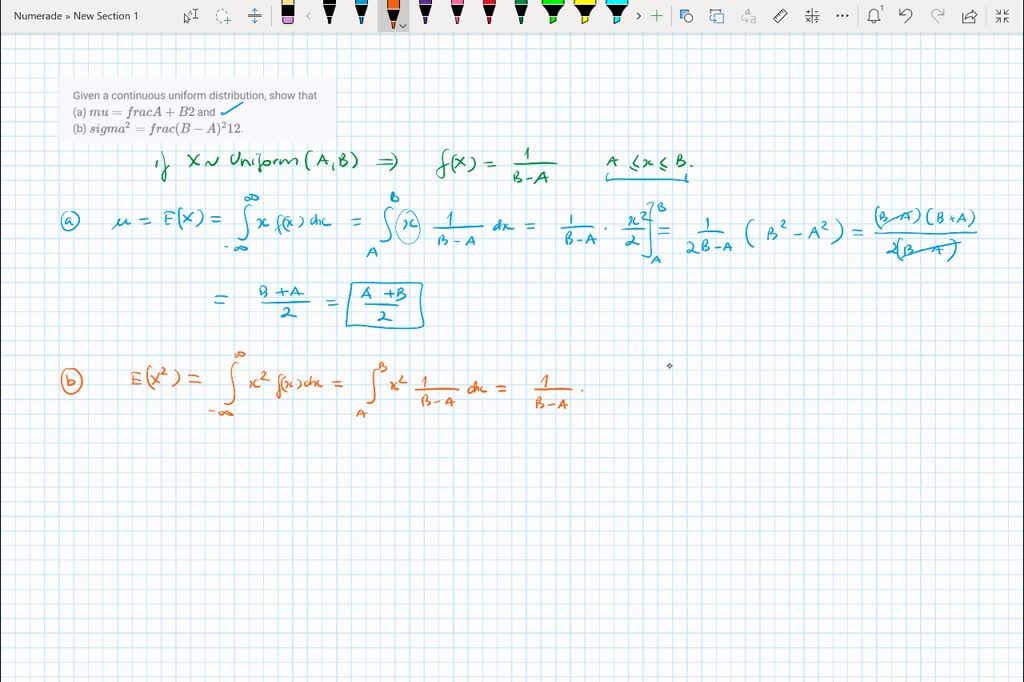 Numerade » New Section 1
Given a continuous uniform distribution, show that
(a) mu = fracA + B2 and
(b) sigma² = frac(B − A)²12.
if X ~ Uniform (A, B) ⇒ f(x) = 1/(B-A) A ≤ x ≤ B.
(a) μ = E(X) = ∫_{-∞}^{∞} x f(x) dx = ∫_A^B x 1/(B-A) dx = 1/(B-A) · x²/2]_A^B = 1/(2B-A) (B² - A²) = (B-A)(B+A)/2(B-A)
= (B+A)/2 = (A+B)/2
(b) E(X²) = ∫_{-∞}^{∞} x² f(x) dx = ∫_A^B x² 1/(B-A) dx = 1/(B-A) .